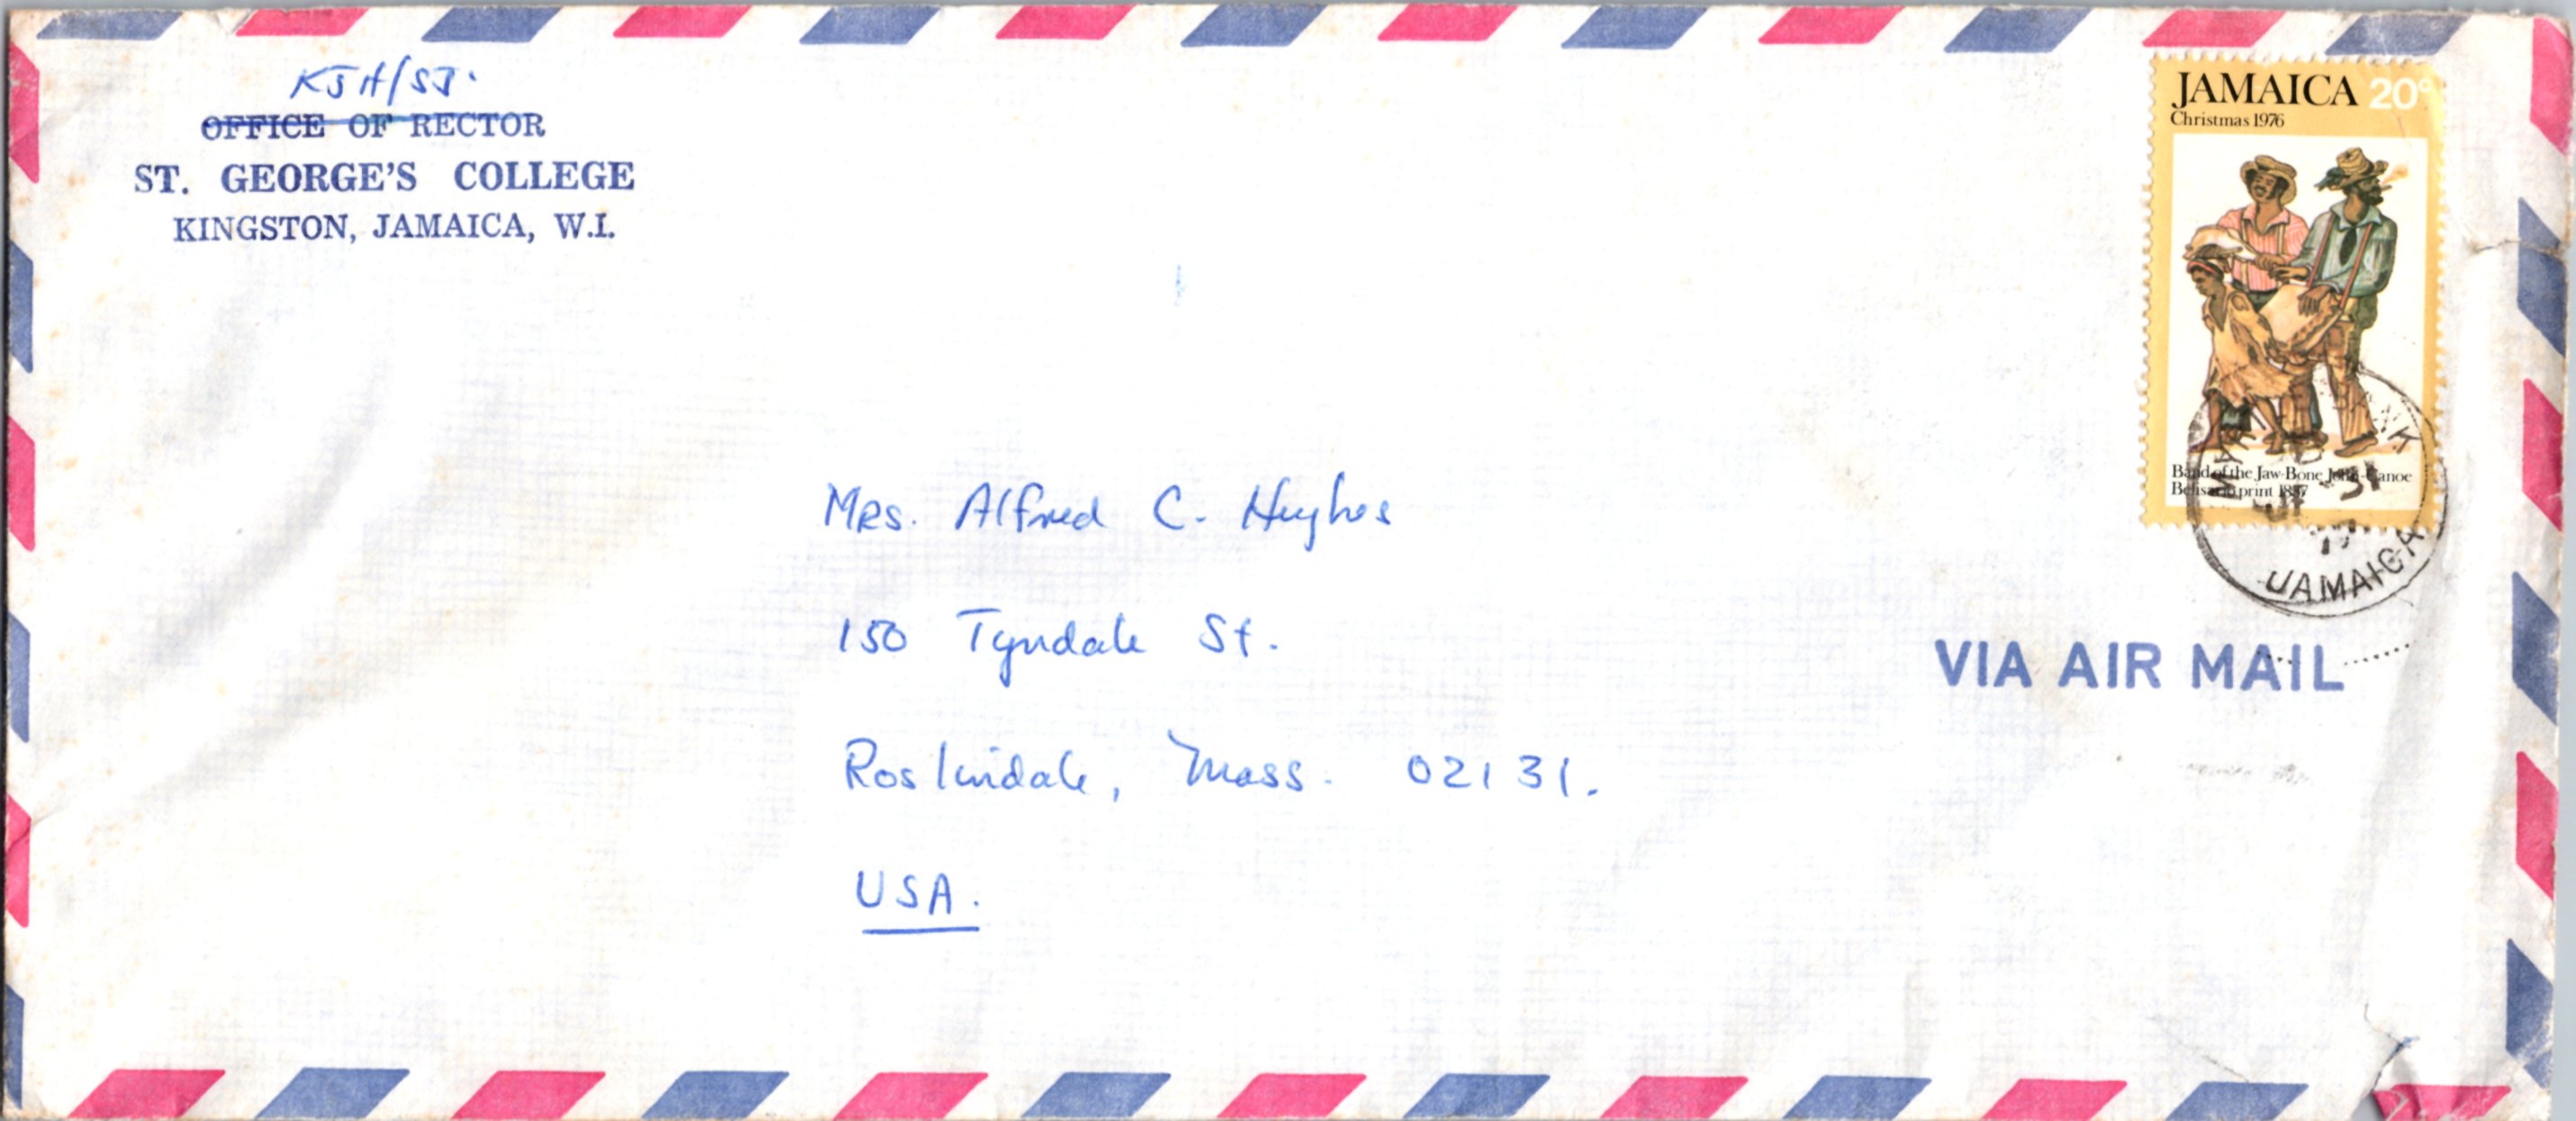 KJH/SJ.
OFFICE OF RECTOR
ST. GEORGE'S COLLEGE
KINGSTON, JAMAICA, W.I.
JAMAICA 20c
Christmas 1976
Band of the Jaw-Bone John-Canoe
Belisario print 1837
JAMAICA
VIA AIR MAIL
Mrs. Alfred C. Hughes
150 Tyndale St.
Roslindale, Mass. 02131.
USA.